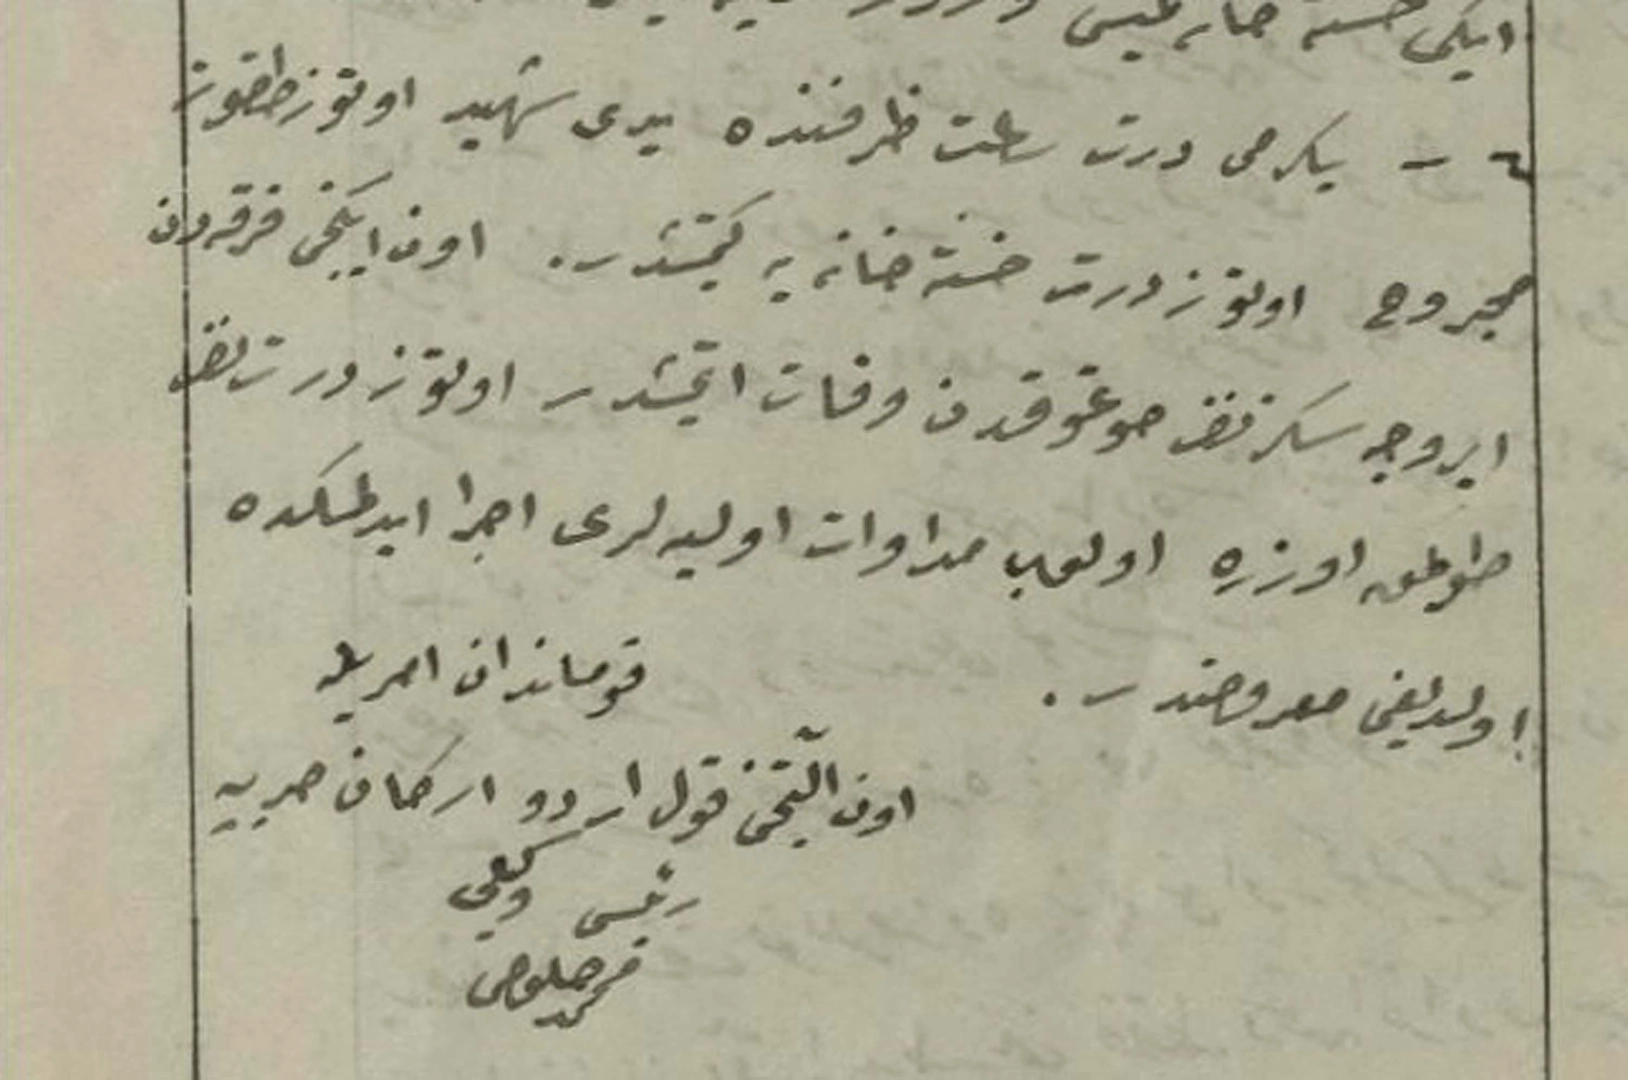 ایکی خسته خانه‌یه
٤ - یکرمی درت ساعت ظرفنده یدی شهید اوتوز طقوز
مجروح اوتوز درت خسته خانه‌یه کیتمشدر. اون ایکنجی فرقه‌دن
ایروجه سکز نفر صوغوقدن وفات ایتمشدر اوتوز درت نفر
طوكمق اوزره اولوب مداوات اولیه‌لری اجرا ایدلمکده
اولدیغی معروضدر.
قوماندان امریله
اون آلتنجی قول اردو ارکان حربیه
رئیسی وکیلی